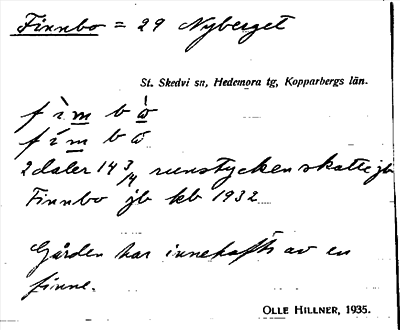 Finnbo = 29 Nyberget
St. Skedvi sn, Hedemora tg, Kopparbergs län.
fìm bò̤
fím bo
2 daler 14 3/4 runstycken skatte jb
Finnbo jb kb 1932
Gården har innehafts av en
finne.
OLLE HILLNER, 1935.